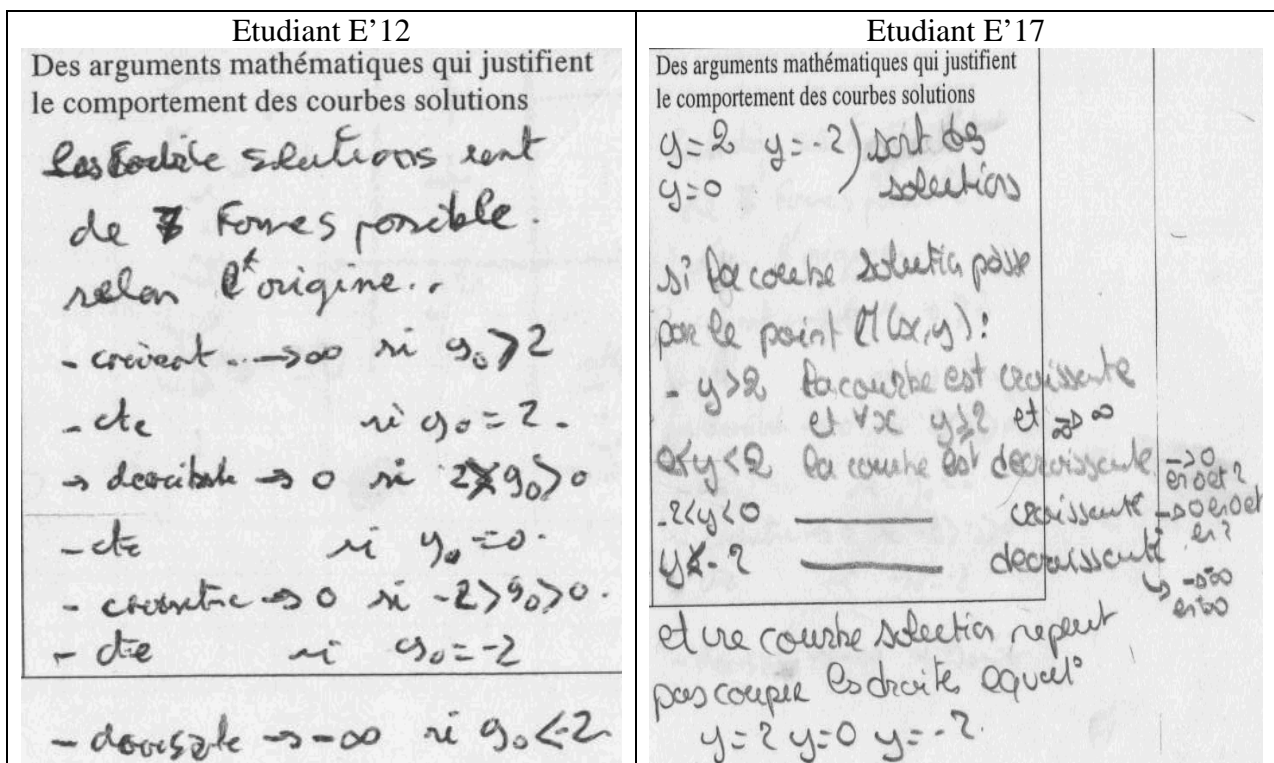 Etudiant E'12
Des arguments mathématiques qui justifient
le comportement des courbes solutions
solutions sont
de 7 Formes possible.
selon l'origine..
- croissant → ∞ si y₀ > 2
- cte si y₀ = 2.
→ → 0 si 2 > y₀ > 0
- cte si y₀ = 0.
- → 0 si -2 > y₀ > 0.
- cte si y₀ = -2
- → -∞ si y₀ < -2
Etudiant E'17
Des arguments mathématiques qui justifient
le comportement des courbes solutions
y = 2 y = -2 ) sont des
y = 0 solutions
si la courbe solution passe
par le point M(x,y) :
- y > 2 la courbe est croissante
et ∀x y ≥ 2 et → ∞
0 < y < 2 la courbe est decroissante → 0
en 0 et 2
-2 < y < 0 ——— croissante → 0 en 0 et
en 2
y < -2 ——— decroissante
et une courbe solution ne peut
pas couper les droites
y = 2 y = 0 y = -2.